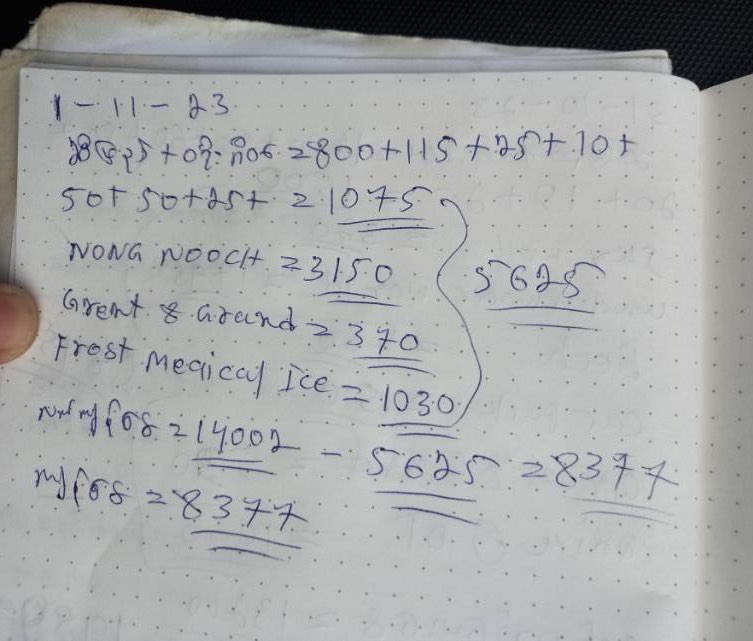 1-11-23
=800+115+25+10+
50+50+25+ =1075
NONG NOOCH =3150
5625
Grent & Grand = 370
Frost Megical Ice = 1030
=14002 - 5625 =8377
=8377